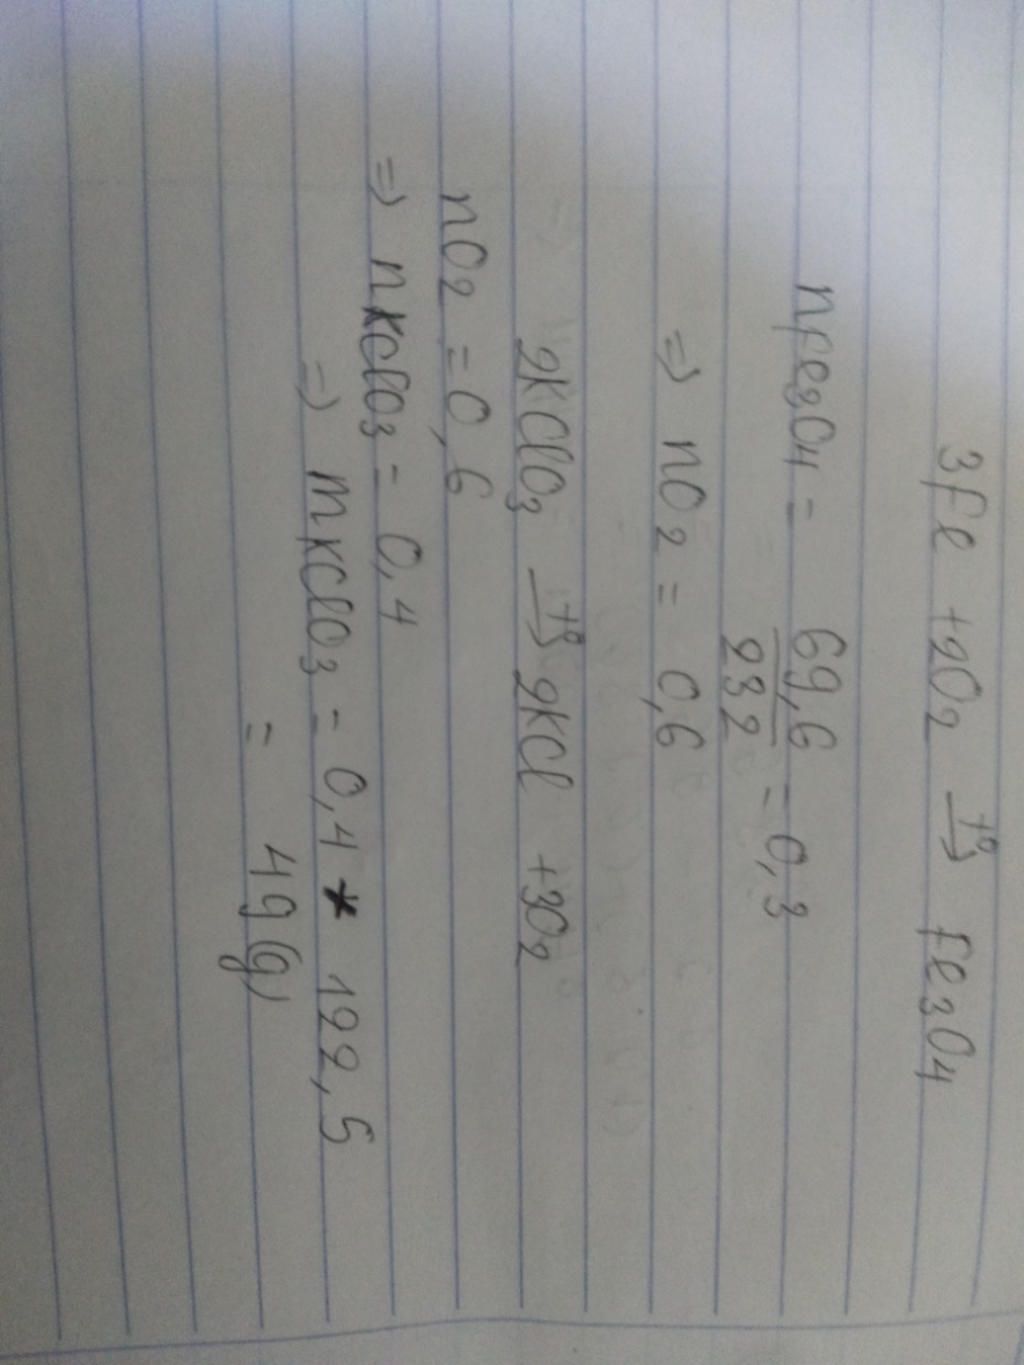 3Fe + 2O2 t° → Fe3O4
nFe3O4 = 69,6 / 232 = 0,3
=> nO2 = 0,6
2KClO3 t° → 2KCl + 3O2
nO2 = 0,6
=> nKClO3 = 0,4
=> mKClO3 = 0,4 * 122,5
= 49 (g)